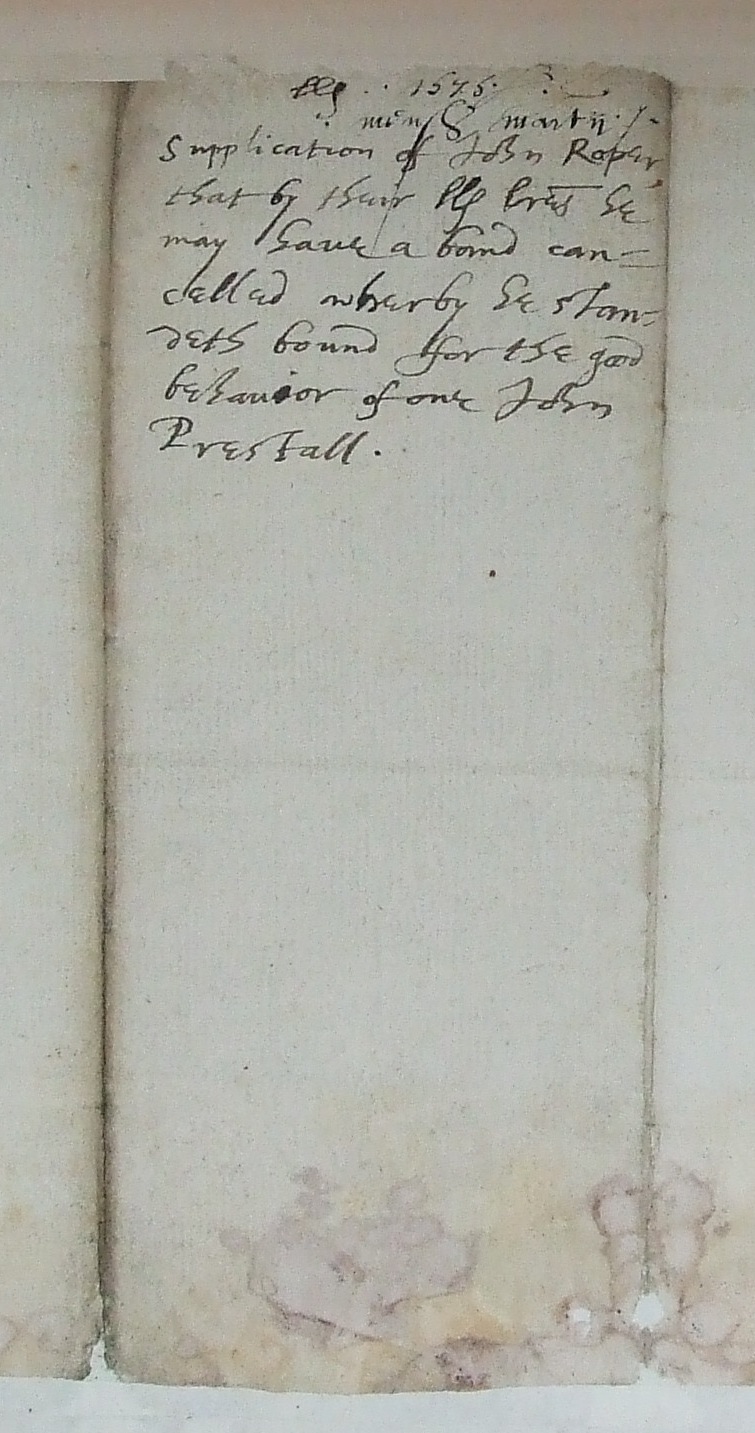 1575.
mens martii
Supplication of John Roper
that by their llp lres he
may haue a bond can=
celled wherby he stan=
deth bound for the good
behauior of one John
Prestall.